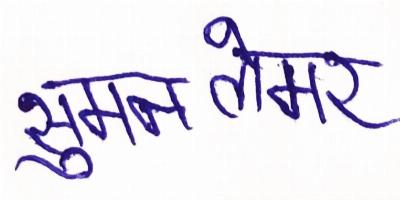 सुमन तोमर